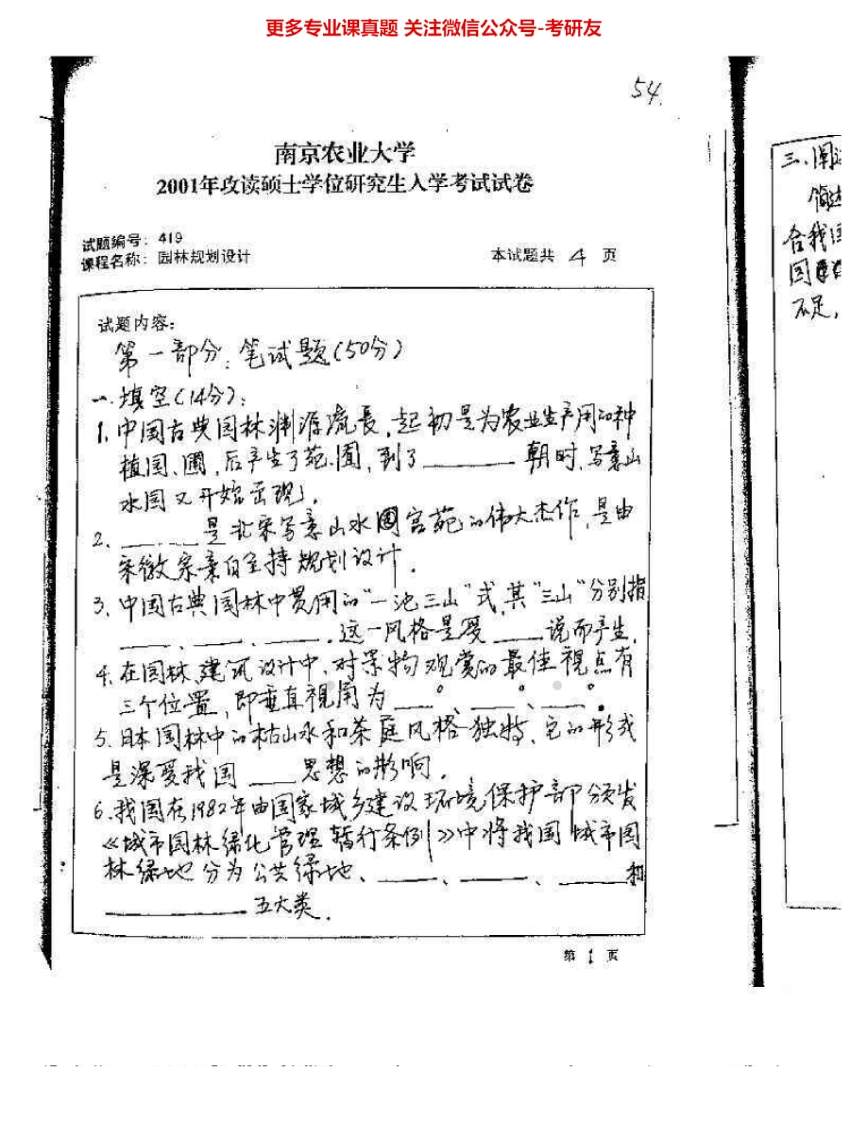 更多专业课真题 关注微信公众号-考研友
54.
南京农业大学
2001年攻读硕士学位研究生入学考试试卷
试题编号：419
课程名称：园林规划设计
本试题共 4 页
试题内容：
第一部分：笔试题（50分）
一、填空（14分）：
1. 中国古典园林渊源流长，起初是为农业生产用的种
植园、圃，后产生了苑、囿，到了______朝时，写意山
水园又开始出现。
2、______是北宋写意山水园宫苑的伟大杰作，是由
宋徽宗亲自主持规划设计．
3、中国古典园林中贯用的“一池三山”式，其“三山”分别指
____、____、____．这一风格是受____说而产生．
4. 在园林建筑设计中，对景物观赏的最佳视点有
三个位置，即垂直视角为___°、___°、___°．
5. 日本园林中的枯山水和茶庭风格独特，它的形成
是深受我国____思想的影响．
6. 我国在1982年由国家城乡建设环境保护部颁发
《城市园林绿化管理暂行条例》中将我国城市园
林绿地分为公共绿地、____、____、____和
________五大类．
第 1 页
三、
合我国
国
不足，